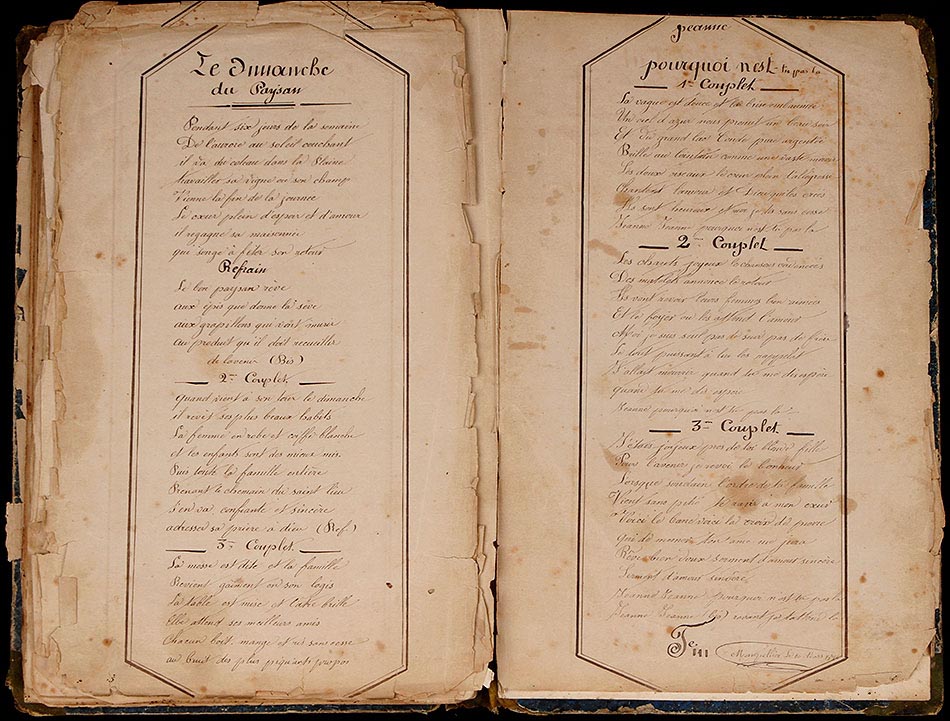 Le Dimanche
du Paysan
Pendant six jours de la semaine
De l'aurore au soleil couchant
il va du coteau dans la Plaine
travailler sa vigne ou son champ
Vienne la fin de la journee
Le coeur plein d'espoir et d'amour
il regagne sa maisonnée
qui songe à fêter son retour
Refrain
Le bon paysan rêve
aux épis que donne la sève
aux grapillons qui vont murir
au produit qu'il doit recueillir
de lavenir (Bis)
2me Couplet
quand vient à son tour le dimanche
il revêt ses plus beaux habits
Sa femme en robe et coiffe blanche
et les enfants sont des mieux mis
Puis toute la famille entière
Prenant le chemain du saint lieu
s'en va confiante et sincère
adresser sa prière a dieu (Ref)
3me Couplet
La messe est dite et la famille
Revient gaiment en son logis
La table est mise et l'atre brille
Elle attend ses meilleurs amis
Chacun boit mange et ri sans cesse
au bruit des plus piquants propos
3
jeanne
pourquoi n'est-tu pas la
1er Couplet
La vague est douce et la brise embaumée
Un ciel d'azur nous promet un beau soir
Et du grand lac l'onde pure argentée
Brille au lointain comme un vaste miroir
Les deux oiseaux le coeur plein d'alegresse
Chantent l'amour et
Ils sont heureux et moi je dis sans cesse
Jeanne Jeanne pourquoi n'est tu pas la
2me Couplet
Les chants joyeux
Des matelots annonce le retour
Ils vont revoir leurs femmes bien aimées
Et le foyer ou les attend l'amour
Moi je suis seul pas de soeur pas de frère
Le doit puissant à lui les rappelat
J'allais mourir quand tu me dis espère
quand tu me dis espère
Jeanne pourquoi n'est tu pas la
3me Couplet
J'étais joyeux pres de toi blonde fille
Pour l'avenir je revoi le bonheur
Lorsque soudain l'ordre de ta famille
Vient sans pitié te ravir à mon coeur
Voici le banc voici la croix de pierre
qui de m'aimer ton ame me jura
Rêve bien doux serment d'amour sincère
Serment d'amour sincère
Jeanne Jeanne pourquoi n'est tu pas la
Jeanne Jeanne (bis)
Fin